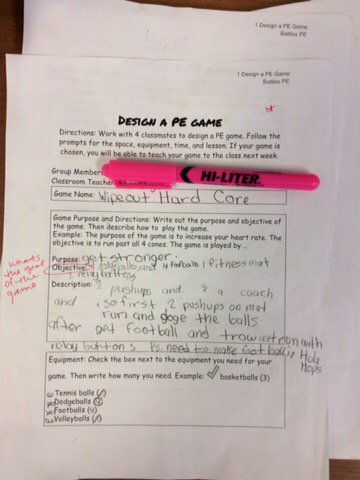 1 Design a PE Game
Battles PE
1 Design a PE Game
Battles PE
DESIGN A PE GAME
Directions: Work with 4 classmates to design a PE game. Follow the
prompts for the space, equipment, time, and lesson. If your game is
chosen, you will be able to teach your game to the class next week.
Group Member
HI-LITER
Classroom Teacher
Game Name: Wipeout Hard Core
Game Purpose and Directions: Write out the purpose and objective
of the game. Then describe how to play the game.
Example: The purpose of the game is to increase your heart rate. The
objective is to run past all 4 cones. The game is played by...
Purpose: get stronger.
what's the goal of the game
Objective: and 4 Footballs 1 fitness mat
relay battons
Description: 2 pushups and & a coach
and . so first 2 pushups on mat
run and doge the balls
after get football and trow run with
relay button s Ps need to make football in Hola
Hops
Equipment: Check the box next to the equipment you need for your
game. Then write how many you need. Example: basketballs (3)
Tennis balls
Dodgeballs
Footballs (4)
Volleyballs